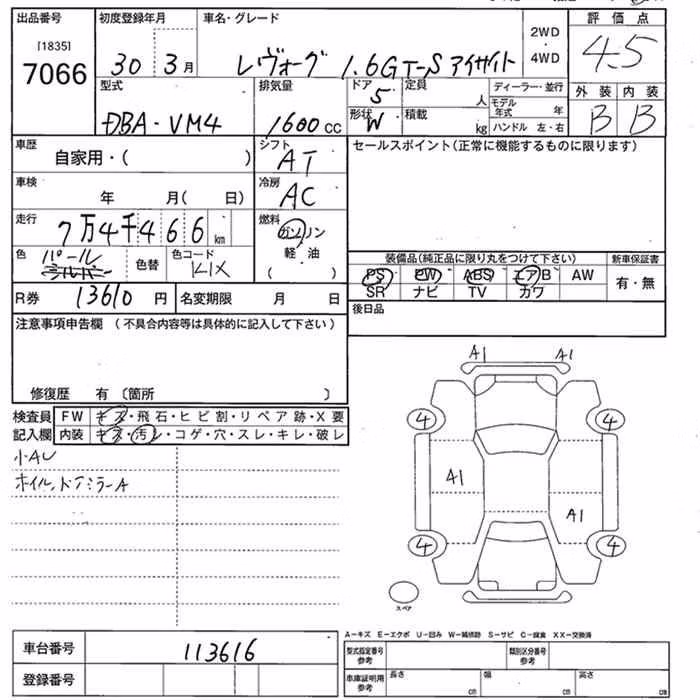 出品番号 初度登録年月 車名・グレード 2WD ・ 4WD 評価点
[1835]
7066 30 3月 レヴォーグ 1.6GT-S アイサイト 4.5
型式 排気量 ドア 定員 ディーラー・並行 外装 内装
5 人 モデル年式 年
DBA-VM4 1600cc 形状 W 積載 kg ハンドル 左・右 B B
車歴 シフト セールスポイント(正常に機能するものに限ります)
自家用・( ) AT
車検 冷房
年 月( 日) AC
走行 燃料
7万4千466km ガソリン
色 パール 色替 色コード 軽油
シルバー K1X ( )
装備品(純正品に限り丸をつけて下さい) 新車保証書
PS PW ABS エアB AW 有・無
SR ナビ TV カワ
R券 13610円 名変期限 月 日
後日品
注意事項申告欄 (不具合内容等は具体的に記入して下さい)
修復歴 有 〔箇所 〕
検査員 FW キズ・飛石・ヒビ割・リペア跡・X要
記入欄 内装 キズ・汚レ・コゲ・穴・スレ・キレ・破レ
小AU
ホイル、ドアミラーA
A1 A1
4 4
A1
A1
4 4
スペア
A−キズ E−エクボ U−凹み W−補修跡 S−サビ C−腐食 XX−交換済
車台番号 113616 型式指定番号 参考 類別区分番号 参考
登録番号 車庫証明用 参考 長さ cm 幅 cm 高さ cm